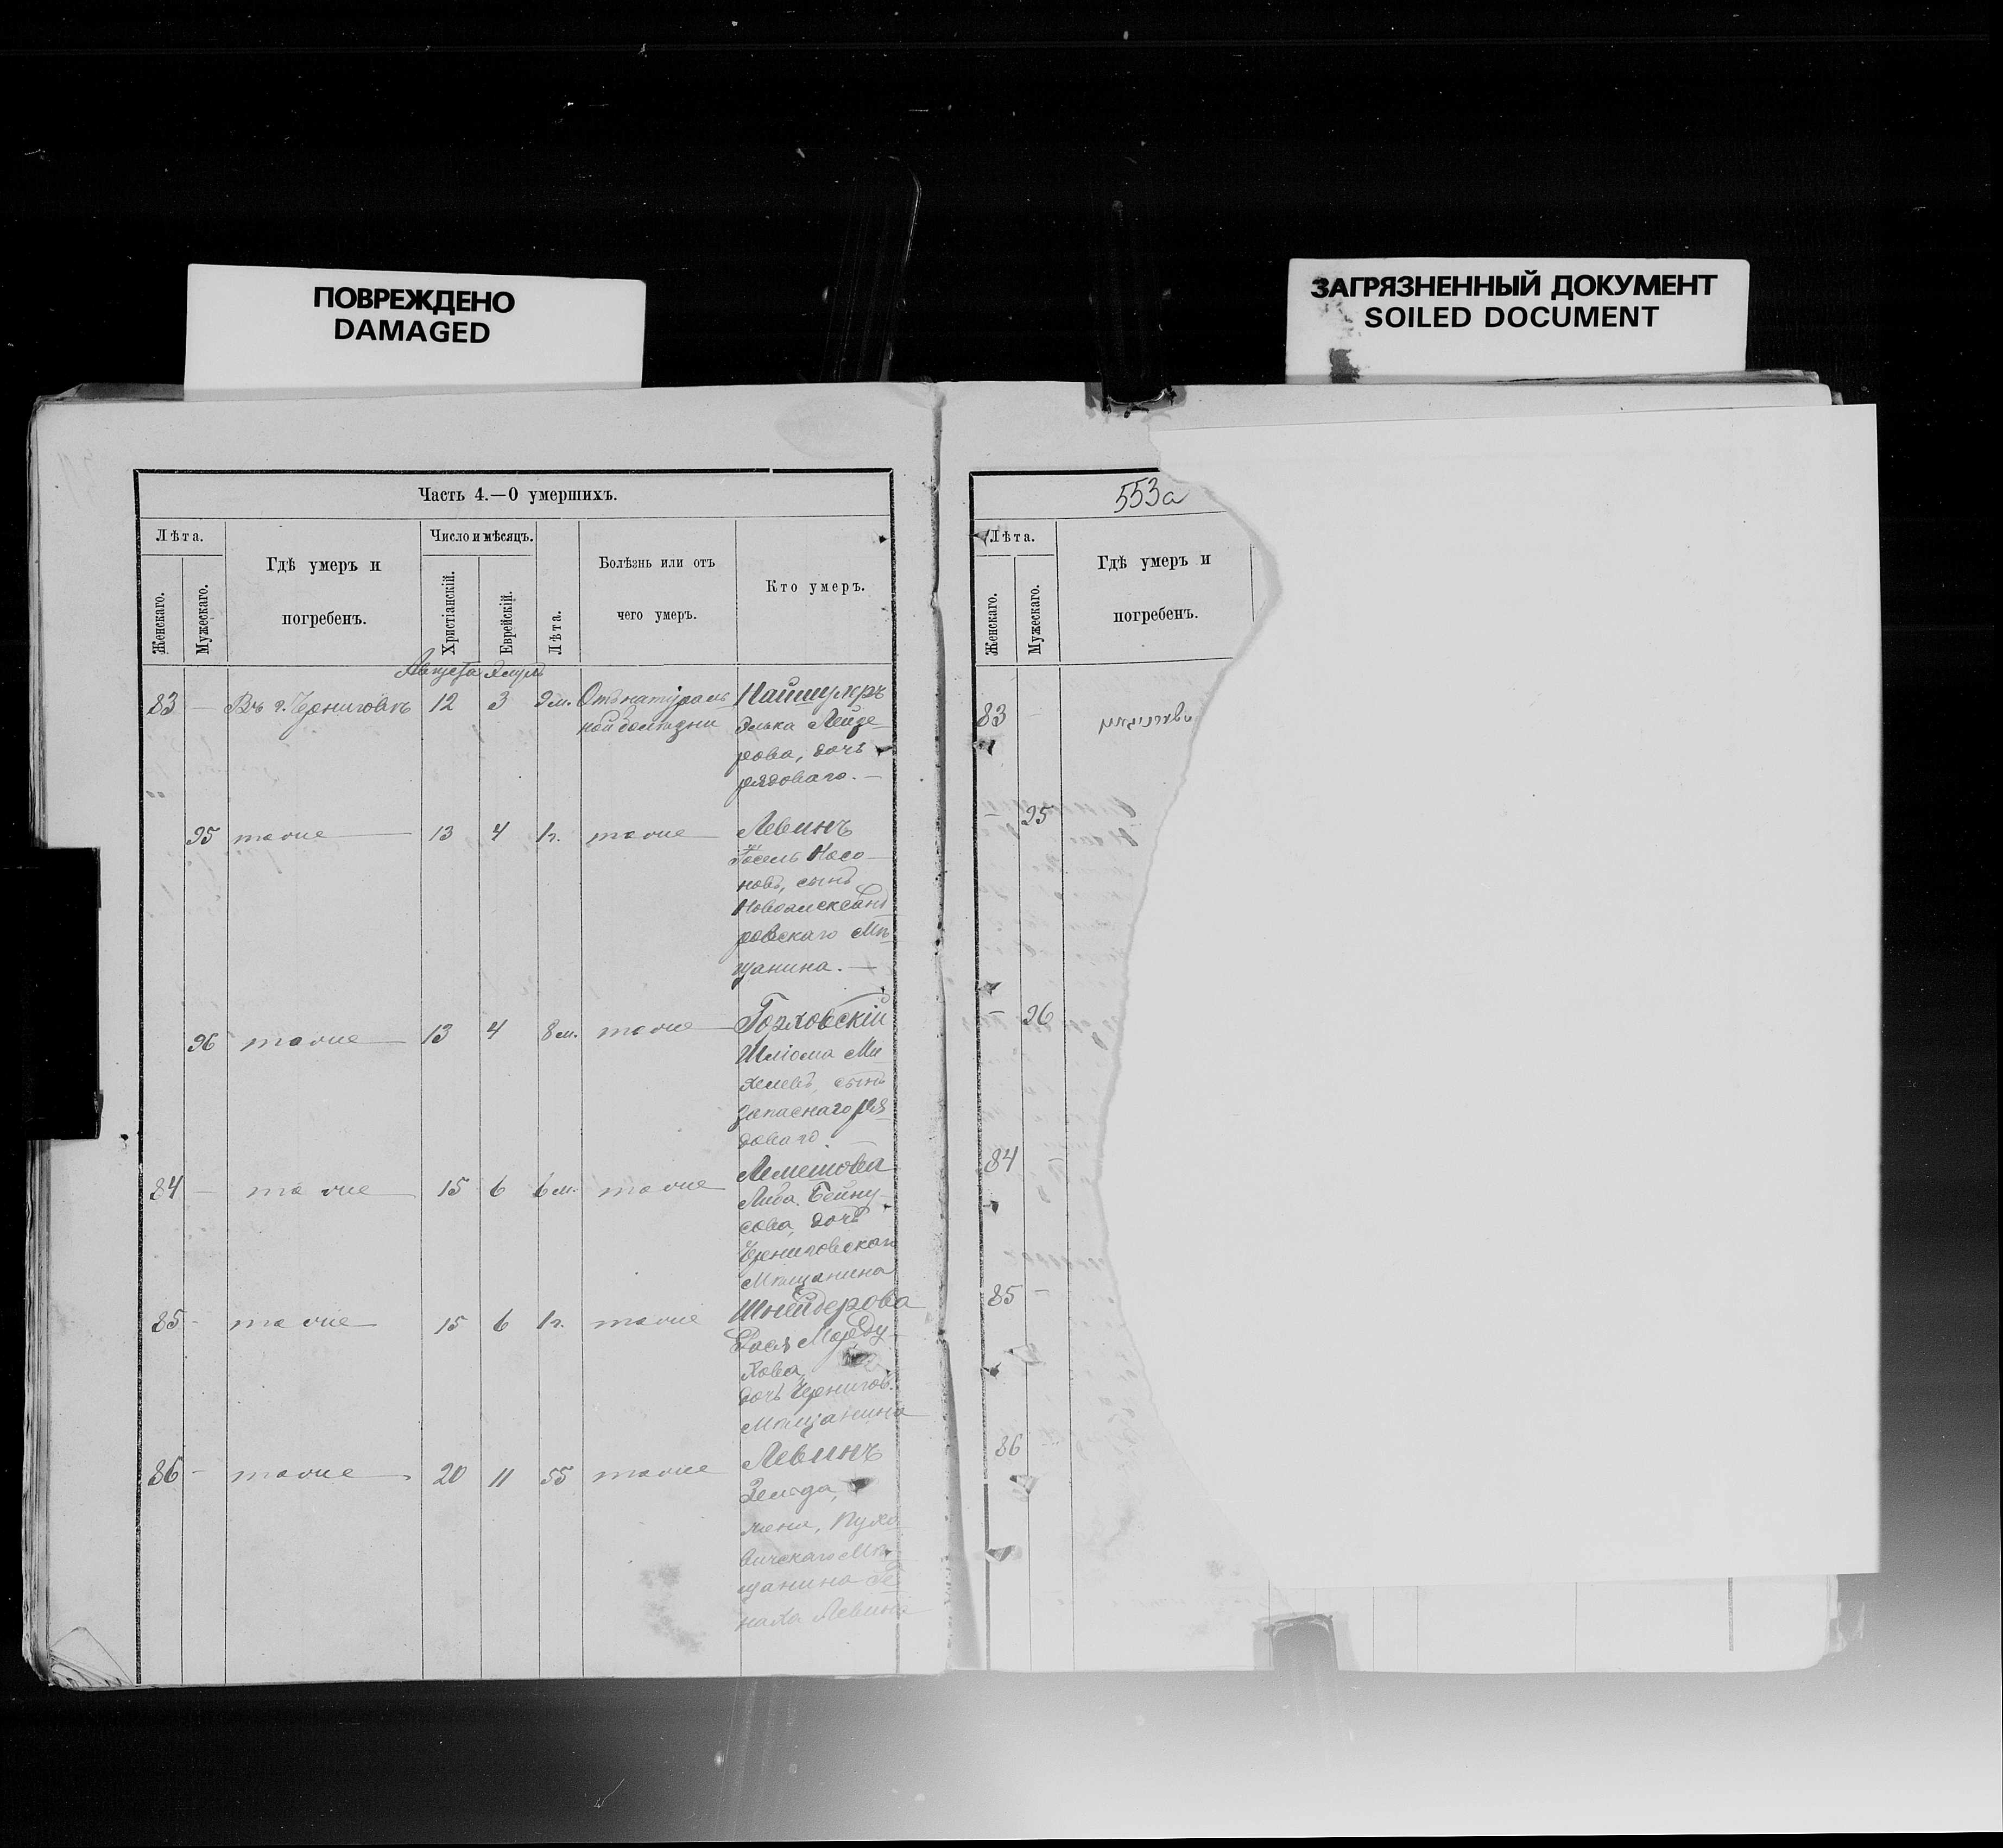 ПОВРЕЖДЕНО
DAMAGED
ЗАГРЯЗНЕННЫЙ ДОКУМЕНТ
SOILED DOCUMENT
Часть 4.—О умершихъ.
Лѣта.
Женскаго.
Мужескаго.
Гдѣ умеръ и
погребенъ.
Число и мѣсяцъ.
Христіанскій.
Еврейскій.
Лѣта.
Болѣзнь или отъ
чего умеръ.
Кто умеръ.
Августа
83 — Въ г. Черниговѣ 12 3 9 м. Отъ натураль
ной болѣзни
Элька Лейзе
рова, дочь
рядоваго. —
95 тоже 13 4 1 г. тоже Левинъ
новъ, сынъ
Новоалександ
ровскаго Мѣ
щанина. —
96 тоже 13 4 8 м. тоже
Шліома Ми
хелевъ, сынъ
запаснаго ря
доваго.
84 — тоже 15 6 6 м. тоже
Либа Бейну
сова, дочь
Черниговскаго
Мѣщанина
85 — тоже 15 6 1 г. тоже Шнейдерова
Мордху
хова,
дочь Чернигов.
Мѣщанина
86 — тоже 20 11 55 тоже Левинъ
Зельда,
жена, Пухо
вичскаго Мѣ
щанина Ге
наха Левина
553а
Лѣта.
Женскаго.
Мужескаго.
Гдѣ умеръ и
погребенъ.
83 —
— 95
— 96
84
85 —
86 —